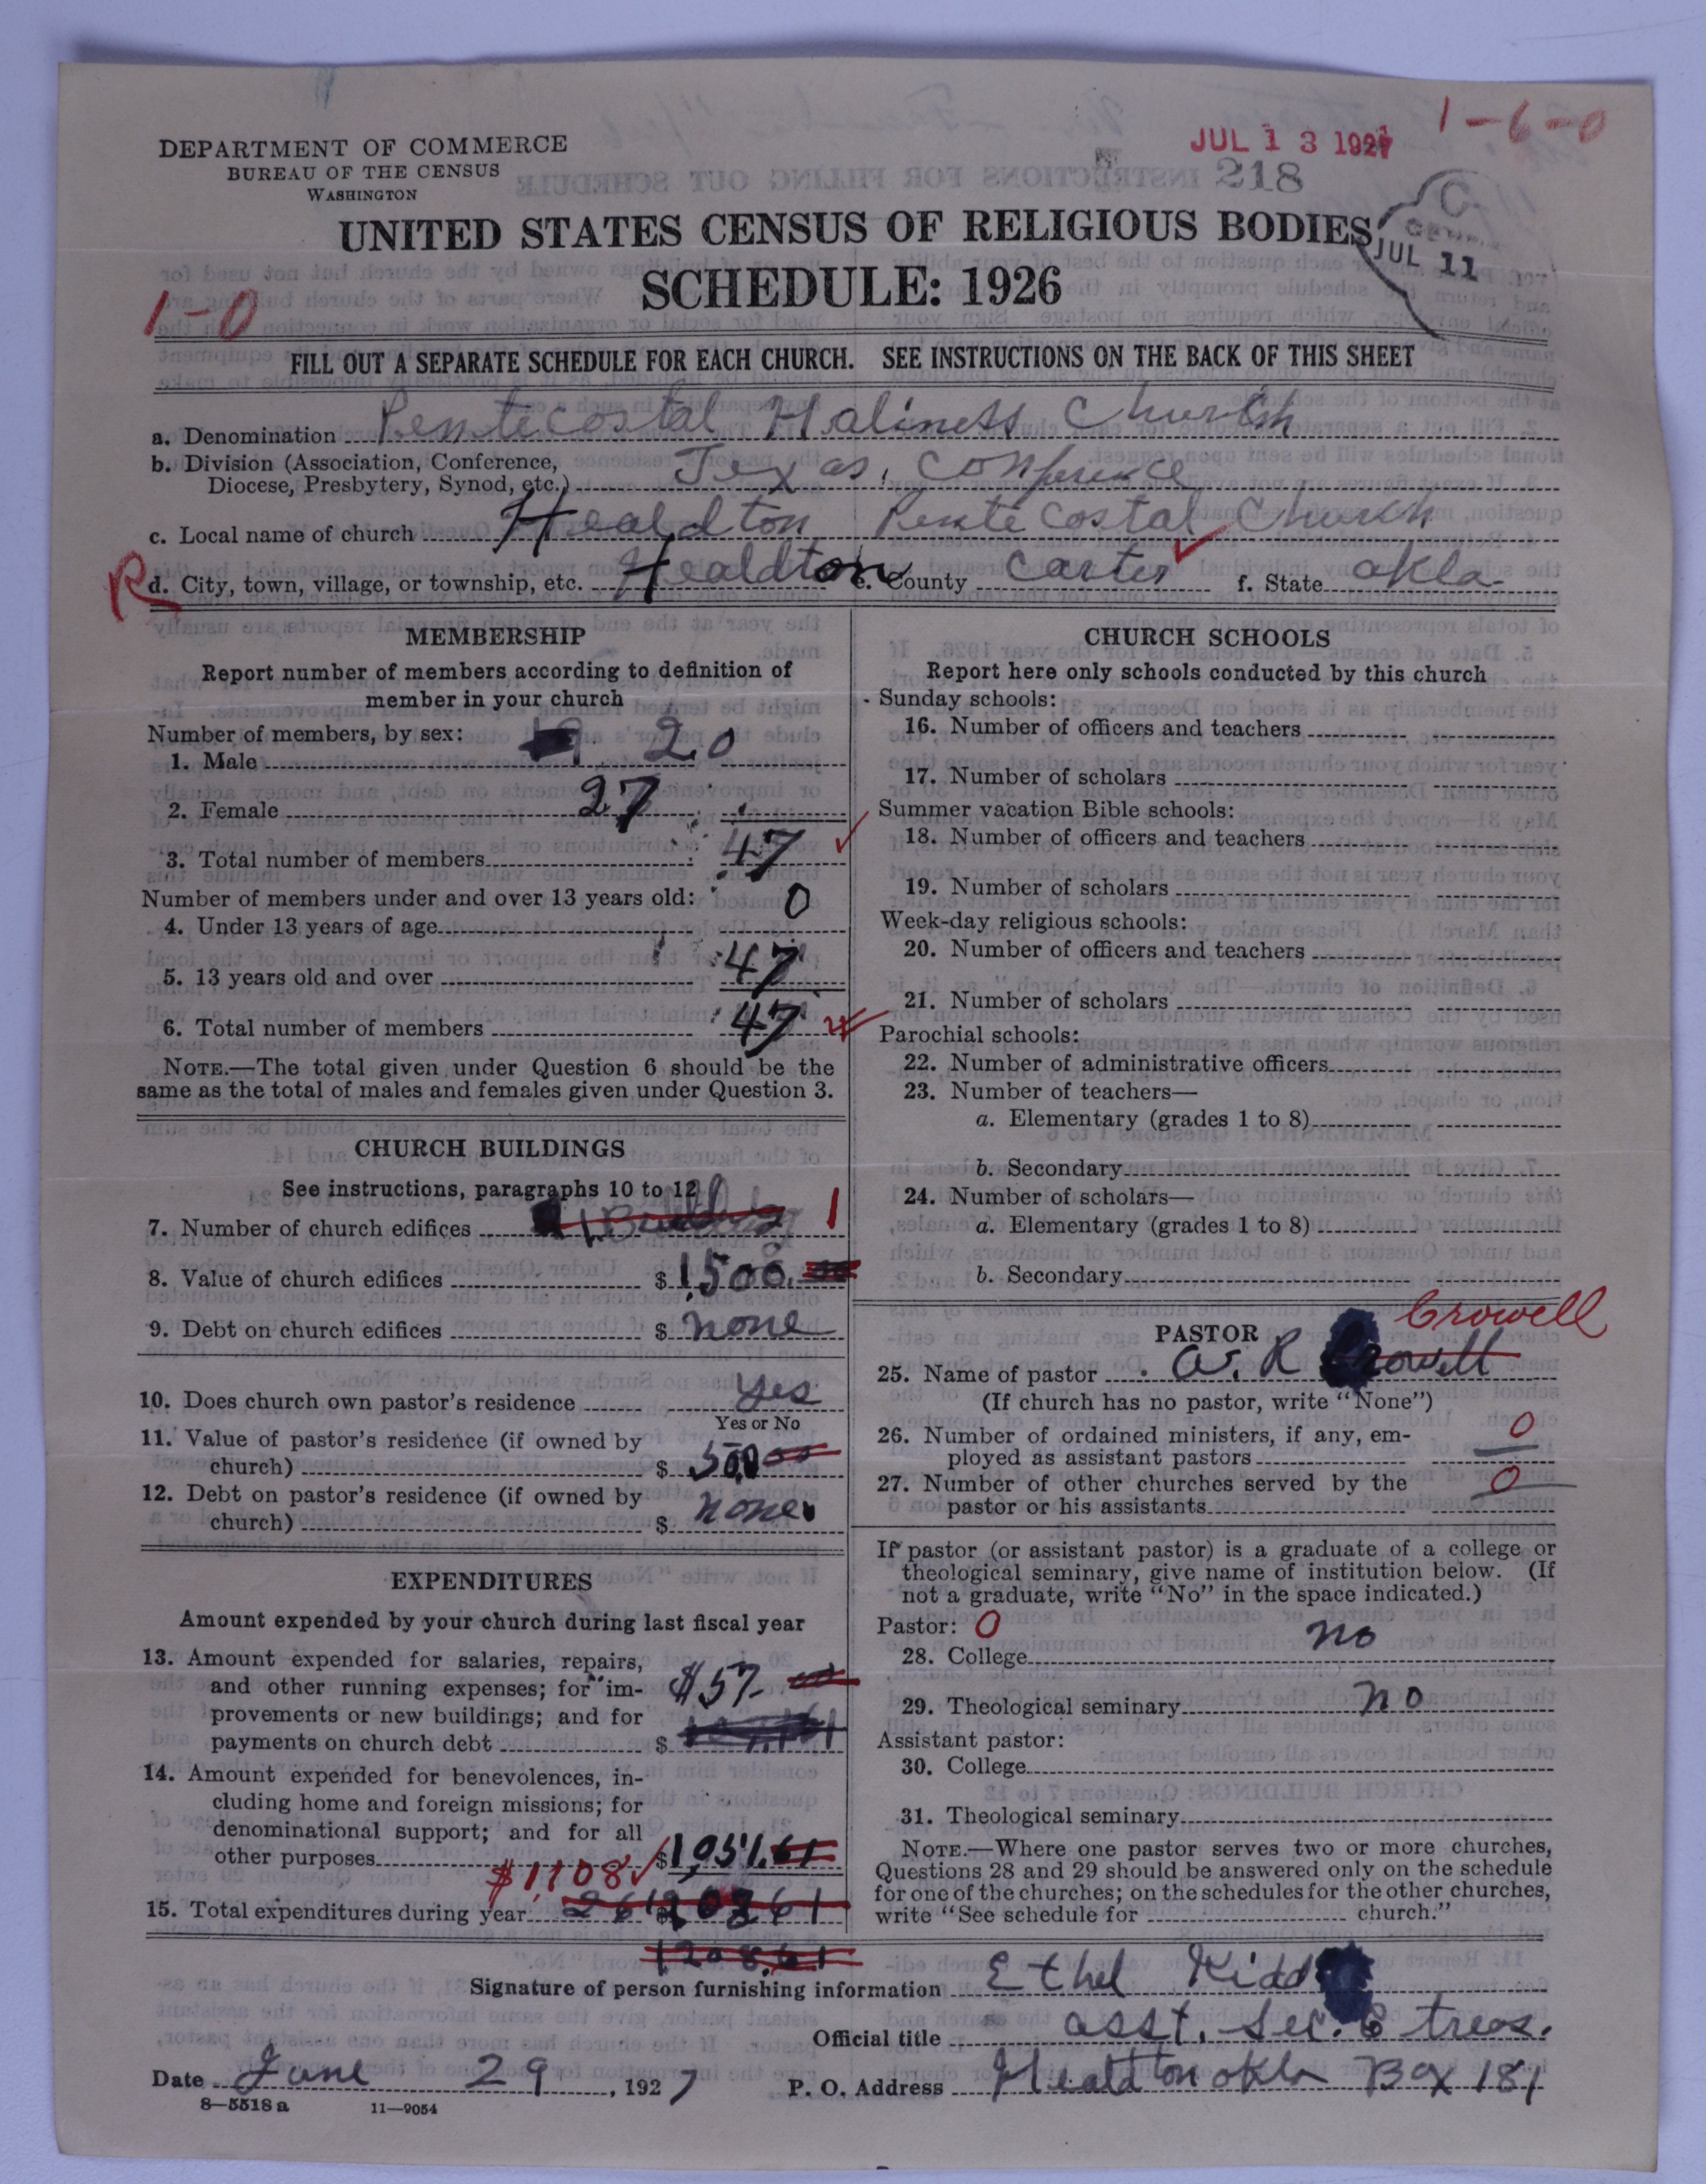 1-6-0
JUL 13 1927
218
DEPARTMENT OF COMMERCE
BUREAU OF THE CENSUS
WASHINGTON
UNITED STATES CENSUS OF RELIGIOUS BODIES
JUL 11
SCHEDULE: 1926
1-0
FILL OUT A SEPARATE SCHEDULE FOR EACH CHURCH. SEE INSTRUCTIONS ON THE BACK OF THIS SHEET
a. Denomination Pentecostal Haliness Church
b. Division (Association, Conference, Diocese, Presbytery, Synod, etc.) Texas, Conference
c. Local name of church Healdton Pentecostal Church
R d. City, town, village, or township, etc. Healdton e. County Carter f. State Okla.
MEMBERSHIP
Report number of members according to definition of
member in your church
Number of members, by sex:
1. Male 20
2. Female 27
3. Total number of members 47
Number of members under and over 13 years old:
4. Under 13 years of age 0
5. 13 years old and over 47
6. Total number of members 47
NOTE.—The total given under Question 6 should be the
same as the total of males and females given under Question 3.
CHURCH BUILDINGS
See instructions, paragraphs 10 to 12
7. Number of church edifices 1 Building 1
8. Value of church edifices $ 1,500.00
9. Debt on church edifices $ none
10. Does church own pastor's residence yes
Yes or No
11. Value of pastor's residence (if owned by
church) $ 500 00
12. Debt on pastor's residence (if owned by
church) $ none
EXPENDITURES
Amount expended by your church during last fiscal year
13. Amount expended for salaries, repairs,
and other running expenses; for im-
provements or new buildings; and for
payments on church debt $ $57- 00
14. Amount expended for benevolences, in-
cluding home and foreign missions; for
denominational support; and for all
other purposes $1,051.61
$1,108
15. Total expenditures during year
1208.61
CHURCH SCHOOLS
Report here only schools conducted by this church
Sunday schools:
16. Number of officers and teachers
17. Number of scholars
Summer vacation Bible schools:
18. Number of officers and teachers
19. Number of scholars
Week-day religious schools:
20. Number of officers and teachers
21. Number of scholars
Parochial schools:
22. Number of administrative officers
23. Number of teachers—
a. Elementary (grades 1 to 8)
b. Secondary
24. Number of scholars—
a. Elementary (grades 1 to 8)
b. Secondary
Crowell
PASTOR
25. Name of pastor A. R Crowell
(If church has no pastor, write "None")
26. Number of ordained ministers, if any, em-
ployed as assistant pastors 0
27. Number of other churches served by the
pastor or his assistants 0
If pastor (or assistant pastor) is a graduate of a college or
theological seminary, give name of institution below. (If
not a graduate, write "No" in the space indicated.)
Pastor: 0
28. College no
29. Theological seminary no
Assistant pastor:
30. College
31. Theological seminary
NOTE.—Where one pastor serves two or more churches,
Questions 28 and 29 should be answered only on the schedule
for one of the churches; on the schedules for the other churches,
write "See schedule for church."
Signature of person furnishing information Ethel Kidd
Official title asst. Sec. & treas.
Date June 29, 1927 P. O. Address Healdton Okla Box 181
8-5518 a 11-9054